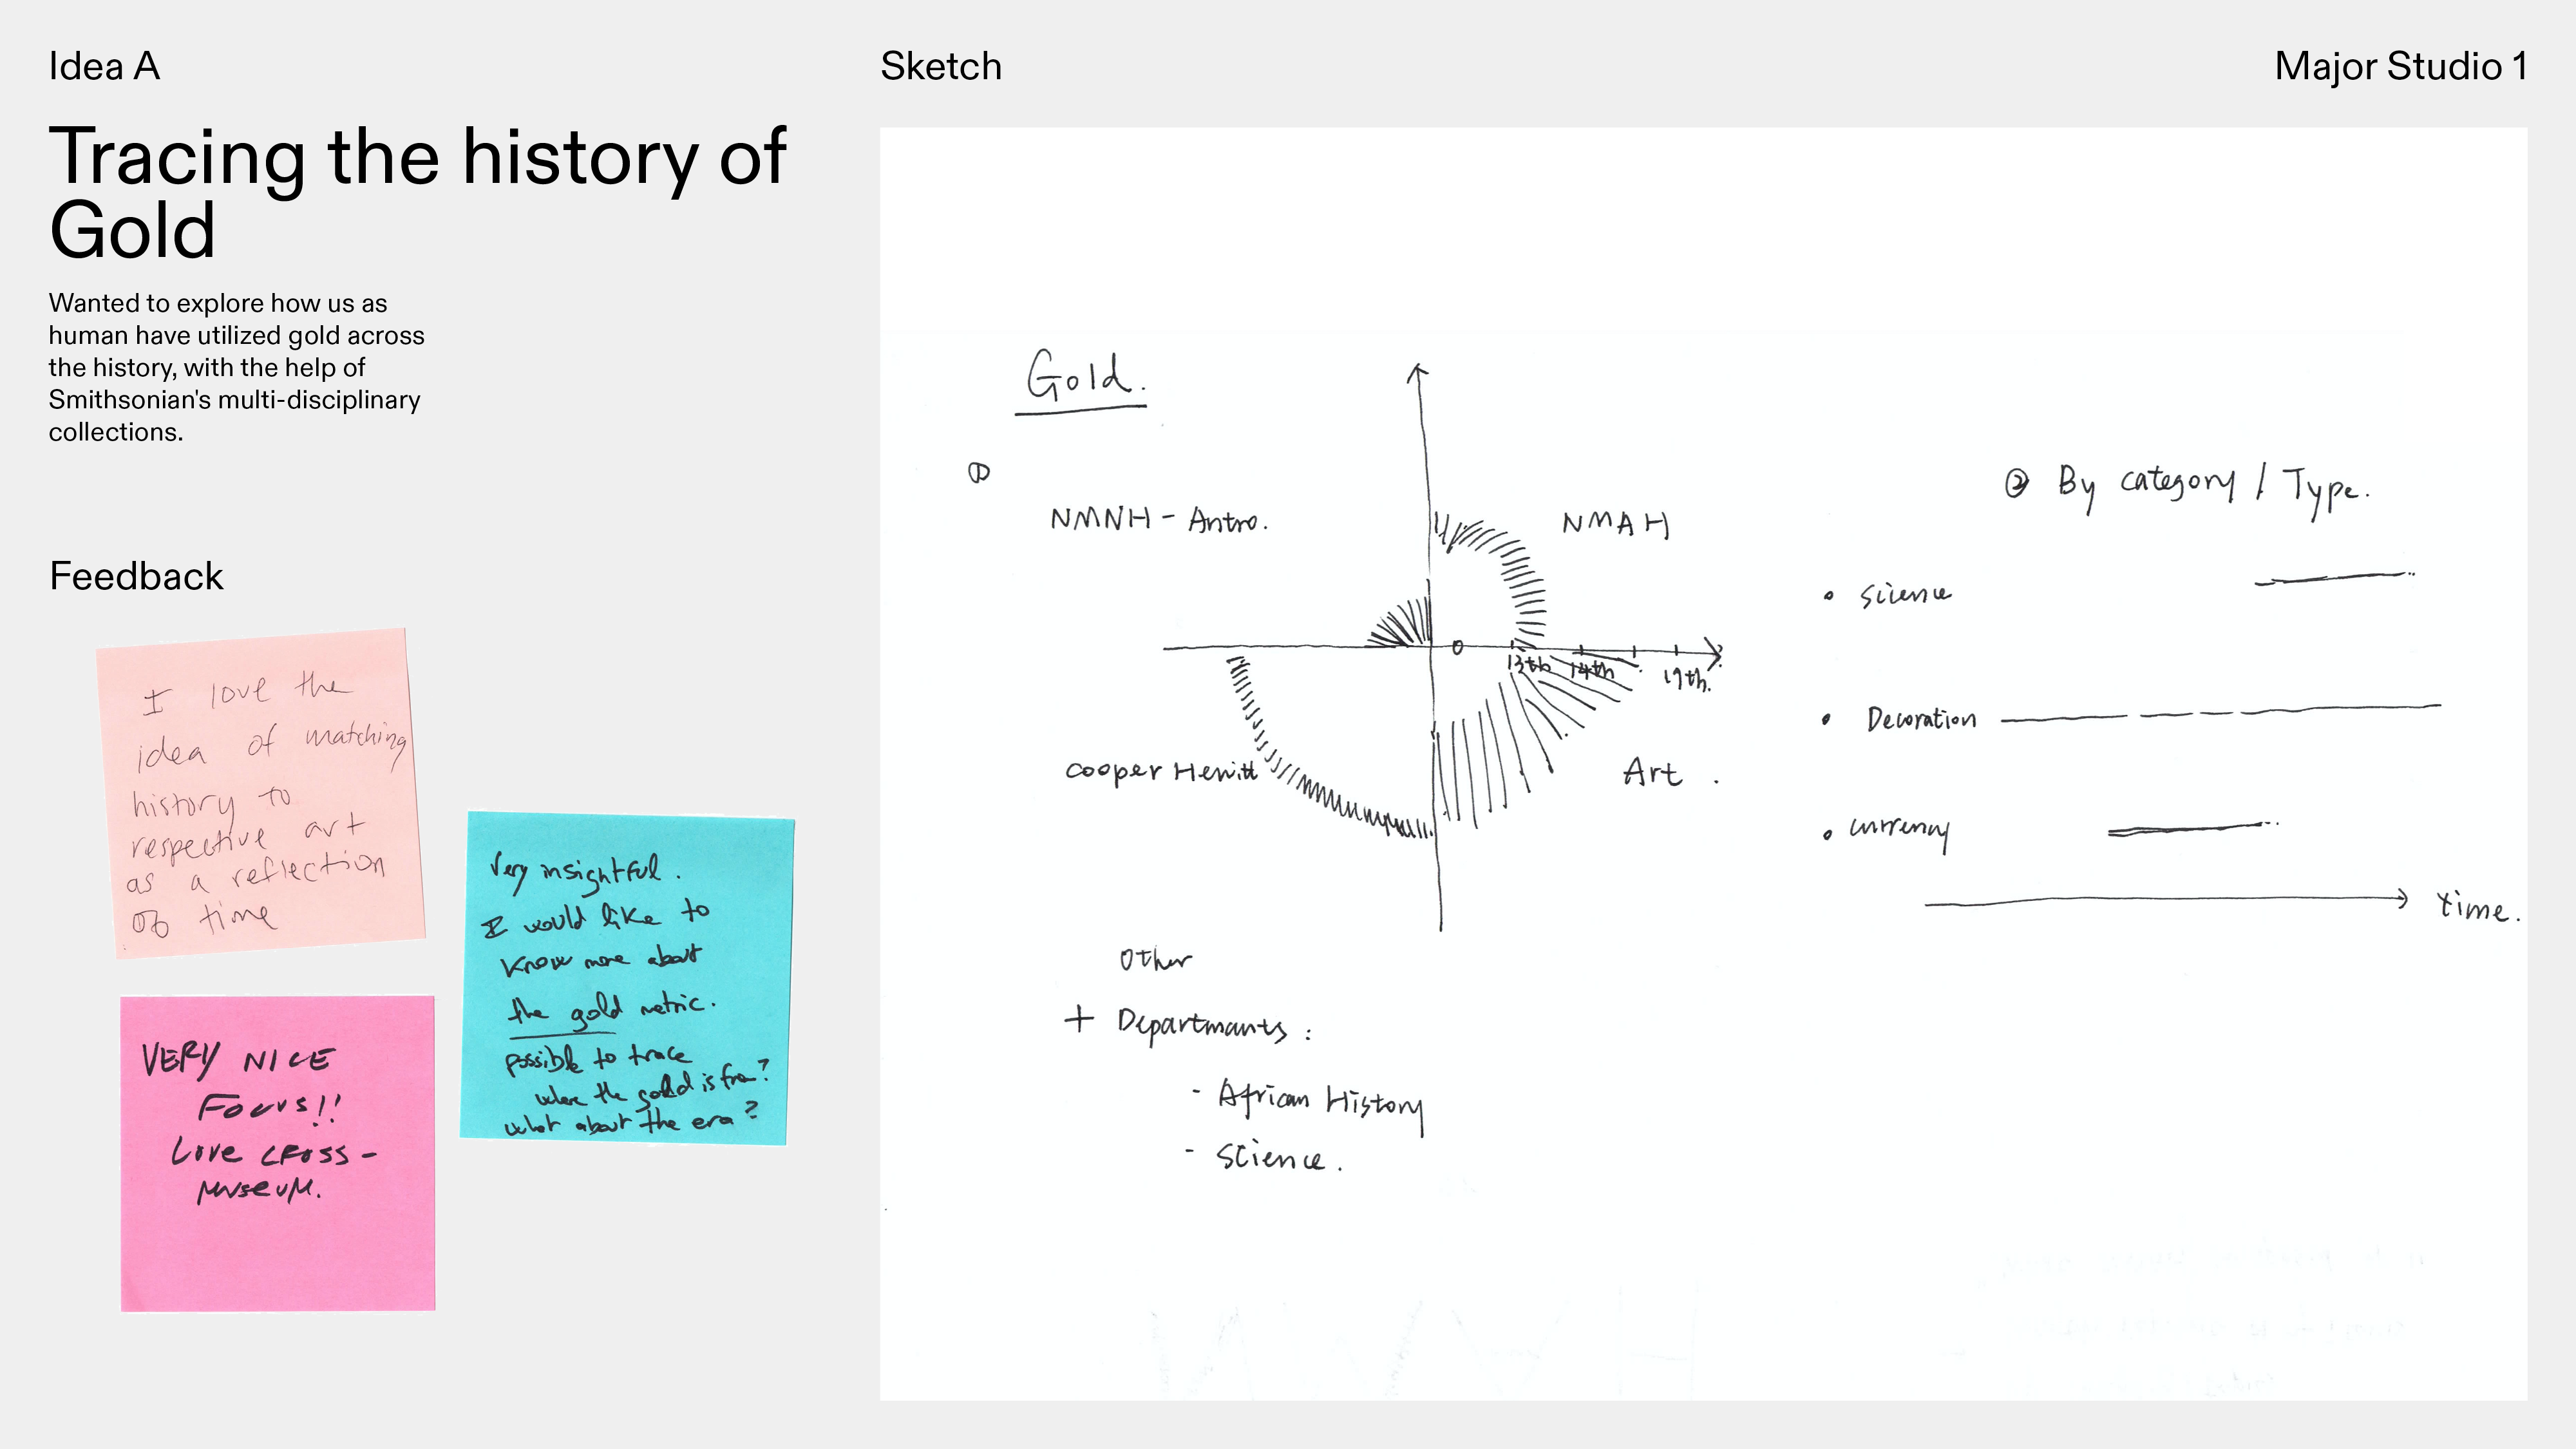 Idea A
Sketch
Major Studio 1
Tracing the history of
Gold
Wanted to explore how us as
human have utilized gold across
the history, with the help of
Smithsonian's multi-disciplinary
collections.
Feedback
I love the
idea of matching
history to
respective art
as a reflection
of time
Very insightful.
I would like to
know more about
the gold metric.
possible to trace
where the gold is from?
what about the era?
VERY NICE
FOCUS!!
Love CROSS-
MUSEUM.
Gold.
①
NMNH - Antro.
NMAH
0
13th
14th
19th.
Cooper Hewitt
Art.
Other
+ Departmants:
- African History
- Science.
② By category / Type.
• Science
• Decoration
• Currency
time.